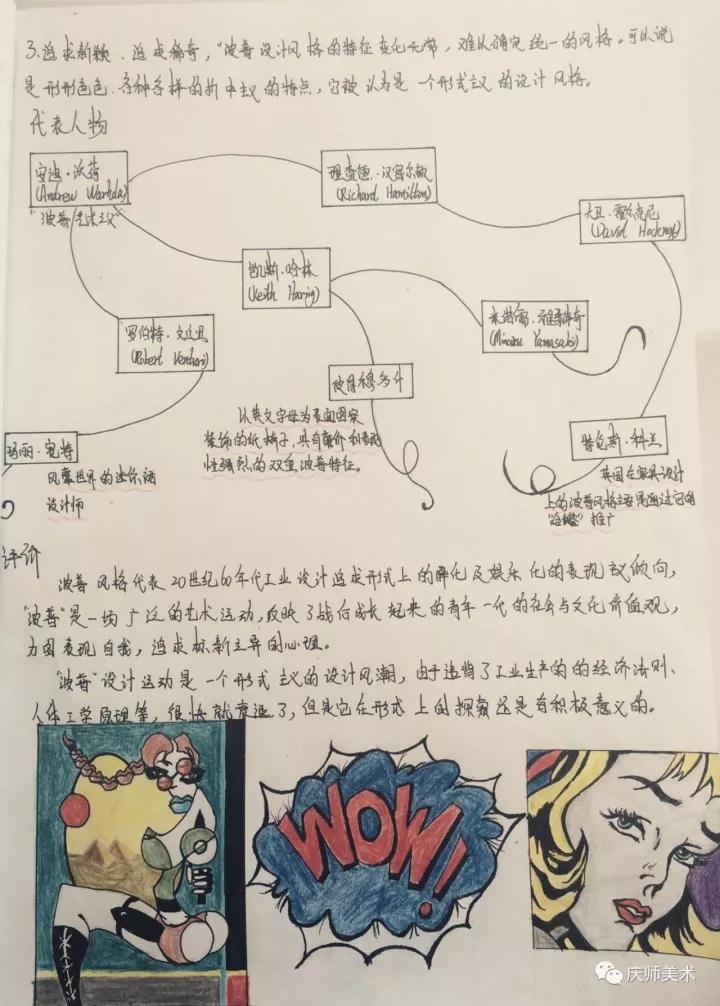 3.追求新颖.追求稀奇,"波普设计风格的特征变化无常,难以确定统一的风格。可以说
是形形色色.各种各样的折中主义的特点,它被认为是一个形式主义的设计风格。
代表人物
安迪·沃荷
(Andrew Warhola)
"波普艺术主义"
理查德·汉密尔敏
(Richard Hamilton)
大卫·霍尔克尼
(David Hockney)
凯斯·哈林
(Keith Haring)
米诺儒·雅马萨奇
(Minoru Yamasaki)
罗伯特·文丘里
(Robert Venturi)
彼得穆多什
以英文字母为表面图案
装饰的纸椅子,具有廉价和表现
性强烈的双重波普特征。
玛丽·奎特
风靡世界的迷你裙
设计师
特伦斯·科兰
英国在家具设计
上的波普风格主要是通过它的
推广
评价
波普风格代表20世纪60年代工业设计追求形式上的异化及娱乐化的表现主义倾向,
"波普"是一场广泛的艺术运动,反映了战后成长起来的青年一代的社会与文化价值观,
力图表现自我,追求标新立异的心理。
"波普"设计运动是一个形式主义的设计风潮,由于违背了工业生产的的经济法则、
人体工学原理等,很快就衰退了,但是它在形式上的探索还是有积极意义的。
WOW!
庆师美术